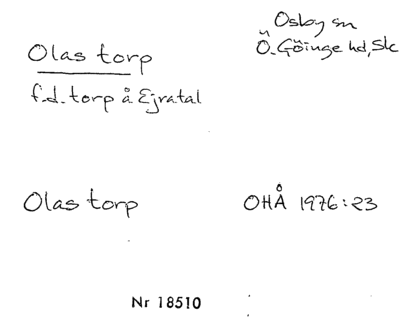 Olas torp
Osby sn
Ö. Göinge hd, Sk
f.d. torp å Ejratal
Olas torp
OHÅ 1976:23
Nr 18510